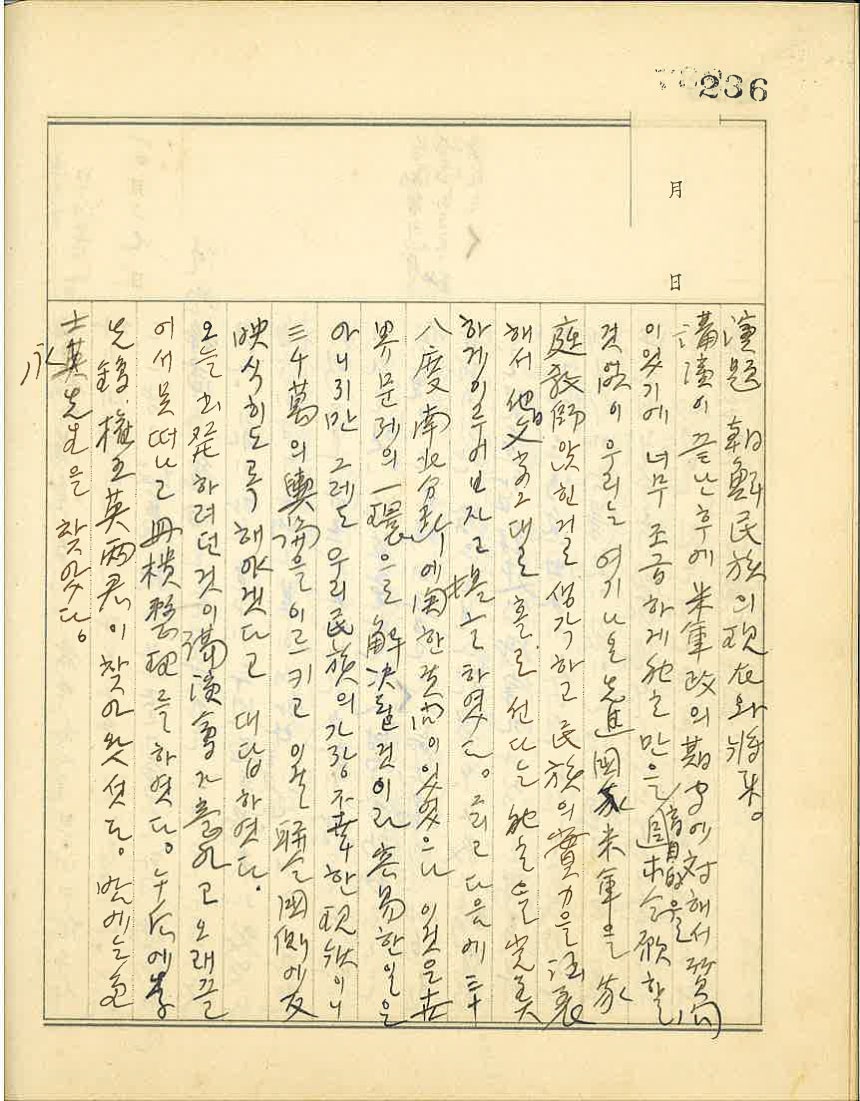 236
月
日
演題 朝鮮民族의 現在와 將來。
講演이 끝난 후에 米軍政의 期間에 対해서 質問
이 있기에 너무 조급하게 独立만을 盲目的으로 念願할
것 없이 우리는 여기 나온 先進國家 米軍을 家
庭教師 앉힌 걸로 생각하고 民族의 實力을
해서 그대로 홀로 선다는 独立을 完美
하게 이루어 보자고 을 하였다。 그리고 다음에 三十
八度 南北分割에 関한 質問이 있었으나 이것은 世
界문제의 一環으로 解決될 것이라 容易한 일은
아니지만 그레도 우리 民族의 가장 不幸한 現狀이니
三千萬의 輿論을 이르키고 이를 聯合國側에 反
映식히도록 해야겠다고 대답하였다.
오늘 出発하려던 것이 講演會가 흘으고 오래 끌
어서 못 떠나고 整理를 하였다。 午后에 李
先鎬. 權五英 両君이 찾아 왓섯다。 밤에는
士英先生을 찾앗다。